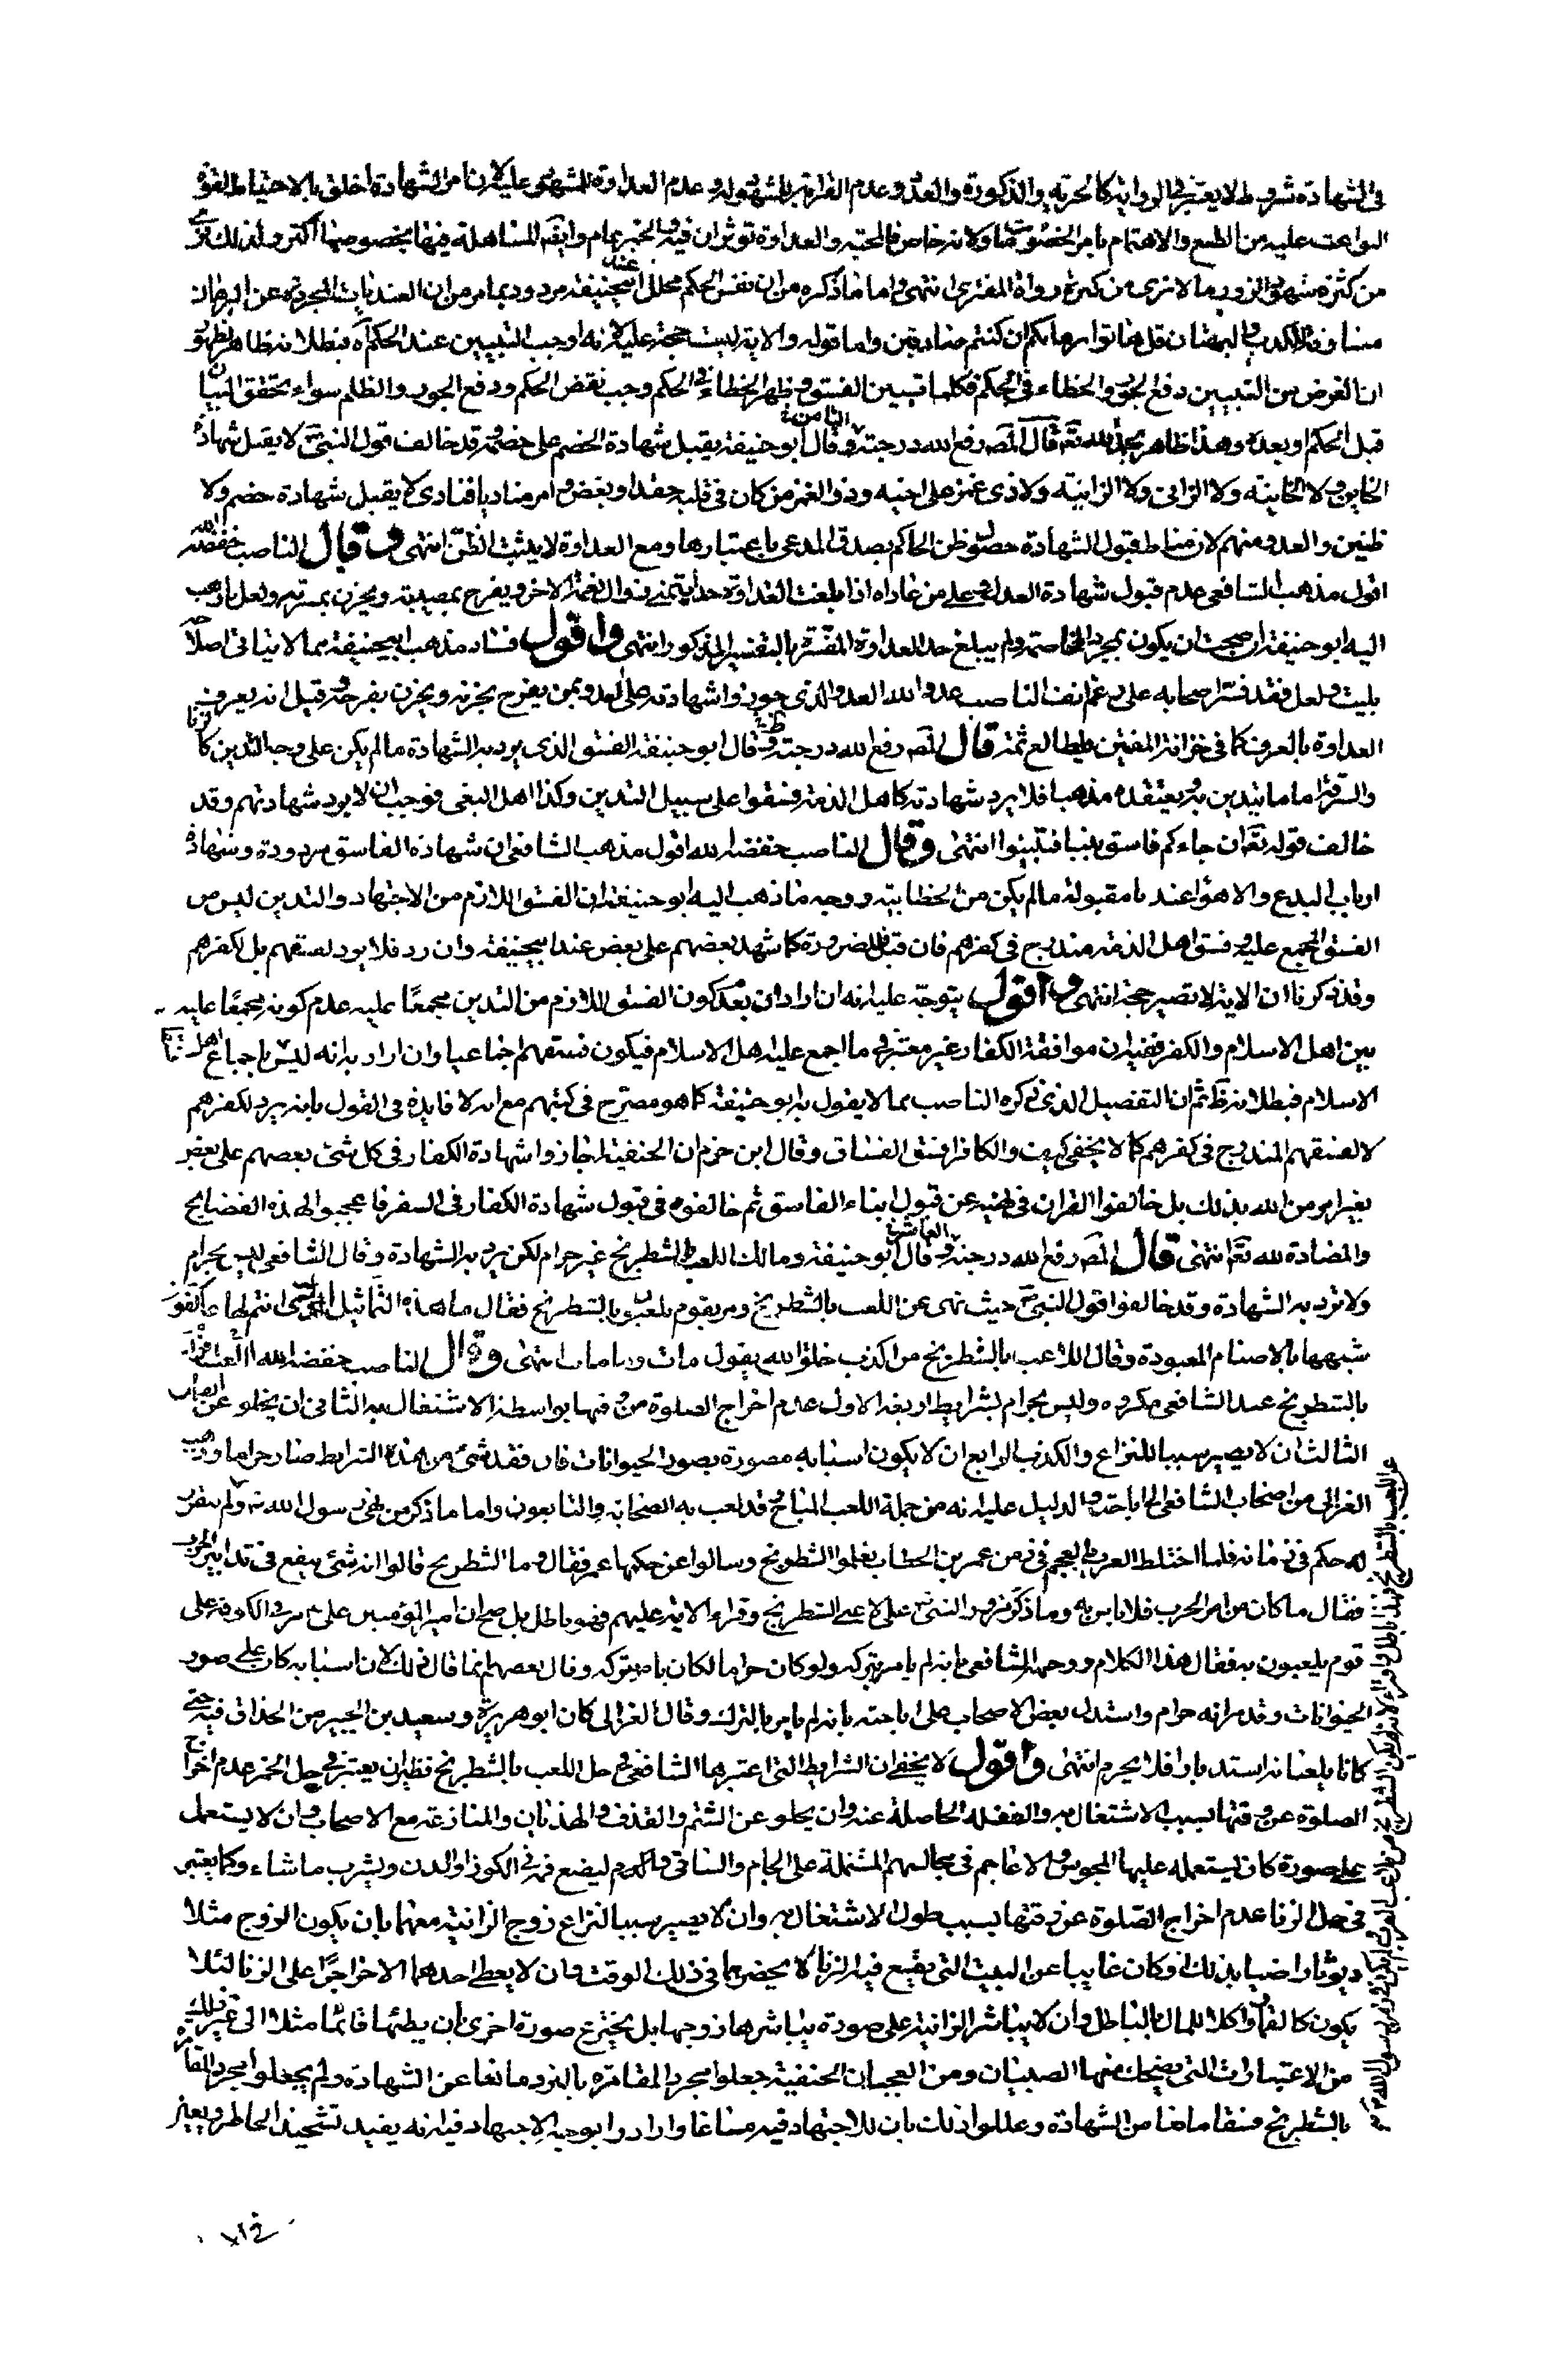 في الشهادة شروط لا يعتبر في الرواية كالحرية والذكورة والعدد وعدم القرابة للمشهود له وعدم العداوة للمشهود عليه لان امر الشهادة اخلق بالاحتياط لقوة
البواعث عليه من الطمع والاهتمام بامر الخصومات ولانه خاص فالمحبة والعداوة تؤثران فيه والخبر عام وايضا المساهلة فيها بخصوصها اكثر ولذلك نرى
من كثرة شهود الزور ما لا نرى من كثرة رواة المفترى انتهى واما ما ذكره من ان نفس الحكم محلل عند ابيحنيفة مردود بما مر من ان العنديات المجردة عن البرهان
مساوقة للكذب والبهتان قل هاتوا برهانكم ان كنتم صادقين واما قوله والاية ليست حجة عليه لانه اوجب التبيين عند الحكم آه فبطلانه ظاهر لظهور
ان الغرض من التبيين دفع الجور والخطاء في الحكم فكلما تبين الفسق وظهر الخطاء في الحكم وجب نقض الحكم ودفع الجور والظلم سواء تحقق البيان
قبل الحكم او بعده وهذا ظاهر بحمد الله تعالى قال المص رفع الله درجته الثامنة وقال ابو حنيفة يقبل شهادة الخصم على خصمه وقد خالف قول النبي لا يقبل شهادة
الخاين ولا الخاينة ولا الزاني ولا الزانية ولا ذي غمز على اخيه وذو الغمز من كان في قلبه حقد او بغض وامر مناديا فنادى لا يقبل شهادة خصم ولا
ظنين والعدو متهم لان مناط قبول الشهادة حصول ظن الحاكم بصدق المدعي باعتبارها ومع العداوة لا يثبت الظن انتهى وقال الناصب خفضه الله
اقول مذهب الشافعي عدم قبول شهادة العدو على من عاداه اذا بلغت العداوة حدا يتمنى زوال نعمة الاخر ويفرح بمصيبته ويحزن بمسرته ولعل ما ذهب
اليه ابو حنيفة ان صحت ان يكون بمجرد المخاصمة ولم يبلغ حد العداوة المفسرة بالتفسير المذكور انتهى واقول فساد مذهب ابيحنيفة مما لا ينافي اصلاحه
بليت ولعل فقد فسر اصحابه على رغم انف الناصب عدو الله العدو الذي جوزوا شهادته على العدو بمن يفرح بحزنه ويحزن بفرحه وقيل انه يعرف
العداوة بالعرف كما في خزانة المفتين فليطالع ثمة قال المص رفع الله درجته ط وقال ابو حنيفة الفسق الذي يرد به الشهادة ما لم يكن على وجه التدين كالزنا
والسرقة اما ما يتدين به ويعتقده مذهبا فلا يرد شهادته كاهل الذمة فسقوا على سبيل التدين وكذا اهل البغي فوجب ان لا يرد شهادتهم وقد
خالف قوله تعالى ان جاءكم فاسق بنبا فتبينوا انتهى وقال الناصب خفضه الله اقول مذهب الشافعي ان شهادة الفاسق مردودة وشهادة
ارباب البدع والاهواء عنده مقبولة ما لم يكن من الخطابية ووجه ما ذهب اليه ابو حنيفة ان الفسق اللازم من الاجتهاد والتدين ليس من
الفسق المجمع عليه وفسق اهل الذمة مندرج في كفرهم فان قبل للضرورة كما شهد بعضهم على بعض عند ابيحنيفة وان رد فلا يرد لفسقهم بل لكفرهم
وقد ذكرنا ان الاية لا تصير حجة انتهى واقول يتوجه عليه انه ان اراد ان بعد كون الفسق اللازم من التدين مجمعا عليه عدم كونه مجمعا عليه
بين اهل الاسلام والكفر ففيه ان موافقة الكفار غير معتبر في ما اجمع عليه اهل الاسلام فيكون فسقهم اجماعيا وان اراد به انه ليس باجماع اهل
الاسلام فبطلانه ظ ثم ان التفصيل الذي ذكره الناصب مما لا يقول به ابو حنيفة كما هو مصرح في كتبهم مع انه لا فايدة في القول بانه يرد لكفرهم
لا لفسقهم المندرج في كفرهم كما لا يخفى كيف والكافر افسق الفساق وقال ابن حزم ان الحنفية اجازوا شهادة الكفار في كل شئ بعضهم على بعض
بغير امر من الله بذلك بل خالفوا القران في نهيه عن قبول نباء الفاسق ثم خالفوه في قبول شهادة الكفار في السفر فاعجبوا لهذه الفضايح
والمضادة لله تعالى انتهى قال المص رفع الله درجته العاشرة وقال ابو حنيفة ومالك اللعب بالشطرنج غير حرام لكن يرد به الشهادة وقال الشافعي ليس بحرام
ولا ترد به الشهادة وقد خالفوا قول النبي حيث نهى عن اللعب بالشطرنج ومر بقوم يلعبون بالشطرنج فقال ما هذه التماثيل التي انتم لها عاكفون
شبهها بالاصنام المعبودة وقال اللاعب بالشطرنج من اكذب خلق الله يقول مات وما مات انتهى وقال الناصب خفضه الله اقول اللعب
بالشطرنج عند الشافعي مكروه وليس بحرام بشرايط اربعة الاول عدم اخراج الصلوة من وقتها بواسطة الاشتغال به الثاني ان يخلو عن القمار
الثالث ان لا يصير سببا للنزاع والكذب الرابع ان لا يكون اسبابه مصورة بصورة الحيوانات فان فقد شئ من هذه الشرايط صار حراما وذهب
الغزالي من اصحاب الشافعي الى اباحته والدليل عليه انه من جملة اللعب المباح وقد لعب به الصحابة والتابعون واما ما ذكر من نهي رسول الله ولم يعرف
له حكم في زمانه فلما اختلط العرب بالعجم في زمن عمر بن الخطاب تعلموا الشطرنج وسالوا عن حكمها عمر فقال وما الشطرنج قالوا انه شئ ينفع في تدابير الحرب
فقال ما كان من امر الحرب فلا باس به وما ذكر من مرور النبي على لاعبي الشطرنج وقراءة الاية عليهم فهو باطل بل صح ان امير المؤمنين علي ع مر في الكوفة على
قوم يلعبون به فقال هذا الكلام ووجهه الشافعي بانه لم يامر بتركه ولو كان حراما لكان يامر بتركه وقال بعضهم انما قال ذلك لان اسبابه كان على صور
الحيوانات وقد مر انه حرام واستدل بعض الاصحاب على اباحته بانه لم يامر بالترك وقال الغزالي كان ابو هريرة وسعيد بن المسيب من الحذاق فيه حتى
كانا يلعبانه استدبارا فلا يحرم انتهى واقول لا يخفى ان الشرايط التي اعتبرها الشافعي في حل اللعب بالشطرنج نظير ان يعتبر في حل الخمر عدم اخراج
الصلوة عن وقتها بسبب الاشتغال به والغفلة الحاصلة عنه وان يخلو عن الشتم والقذف والهذيان والمنازعة مع الاصحاب وان لا يستعمل
على صورة كان يستعمله عليها المجوس والاعاجم في مجالسهم المشتملة على الجام والساقي ليضع فمه في الكوز او الدن ويشرب ما شاء وكما يعتبر
في حل الزنا عدم اخراج الصلوة عن وقتها بسبب طول الاشتغال به وان لا يصير سببا لنزاع زوج الزانية معهما بان يكون الزوج مثلا
ديوثا راضيا بذلك او كان غايبا عن البيت التي يقع فيه الزنا لا يحضرهما في ذلك الوقت وان لا يعطى احدهما الاخر اجرا على الزنا لئلا
يكون كالقمار واكلا للمال بالباطل وان لا يباشر الزانية على صورة يباشرها زوجها بل يخترع صورة اخرى بان يطئها قائما مثلا الى غير ذلك
من الاعتبارات التي يضحك منها الصبيان ومن العجب ان الحنفية جعلوا مجرد المقامرة بالنرد مانعا عن الشهادة ولم يجعلوا مجرد المقامرة
بالشطرنج فسقا مانعا من الشهادة وعللوا ذلك بان للاجتهاد فيه مساغا وارادوا بوجه الاجتهاد فيه انه يفيد تشحيذ الخاطر